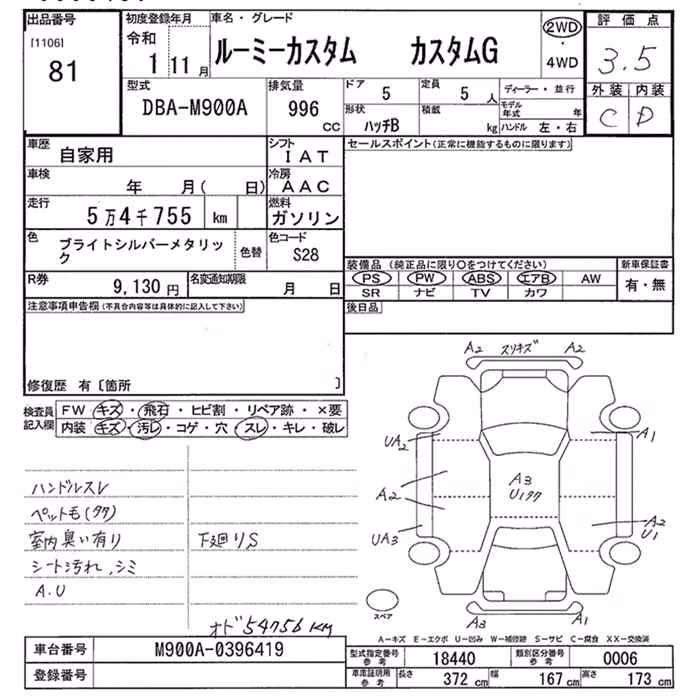 出品番号 初度登録年月 車名・グレード 2WD 評価点
[1106] 令和 ルーミーカスタム カスタムG ・ 3.5
81 1 11月 4WD
型式 排気量 ドア 5 定員 5人 ディーラー・並行 外装 内装
DBA-M900A 996 cc 形状 ハッチB 積載 kg モデル年式 年 C D
ハンドル 左・右
車歴 自家用 シフト IAT セールスポイント(正常に機能するものに限ります)
車検 年 月( 日) 冷房 AAC
走行 5万4千755 km 燃料 ガソリン
色 ブライトシルバーメタリック 色替 色コード S28
装備品(純正品に限り〇をつけてください) 新車保証書
R券 9,130円 名変通知期限 月 日 PS PW ABS エアB AW 有・無
SR ナビ TV カワ
注意事項申告欄(不具合内容等は具体的に記入して下さい) 後日品
修復歴 有〔箇所 〕
検査員記入欄 FW キズ・飛石・ヒビ割・リペア跡・×要
内装 キズ・汚レ・コゲ・穴・スレ・キレ・破レ
A2 スリキズ A2
UA2 A1
A3
U1タク
A2 A2
U1
UA3
ハンドルスレ
ペット毛(タク)
室内臭い有り 下廻りS
シート汚れ、シミ
A.U
スペア A3 A1
オド 54756 KM
A-キズ E-エクボ U-凹み W-補修跡 S-サビ C-腐食 XX-交換済
車台番号 M900A-0396419 型式指定番号 参考 18440 類別区分番号 参考 0006
登録番号 車庫証明用 参考 長さ 372 cm 幅 167 cm 高さ 173 cm